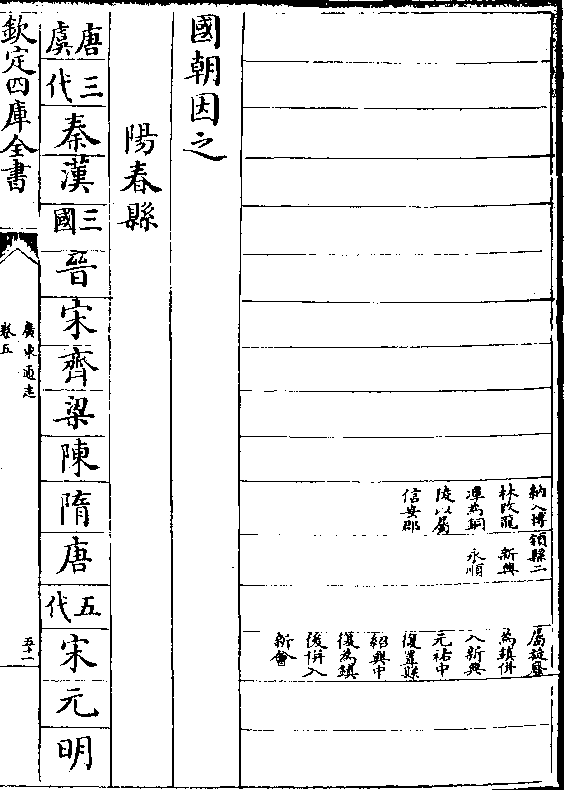 納入博
林改龍
潭為銅
陵以屬
信安郡
領縣二
新興
永順
屬旋廢
為鎮併
入新興
元祐中
復置縣
紹興中
復為鎮
後併入
新會
國朝因之
陽春縣
唐虞
三代
秦
漢
三國
晉
宋
齊
梁
陳
隋
唐
五代
宋
元
明
欽定四庫全書
廣東通志
卷五
五十一